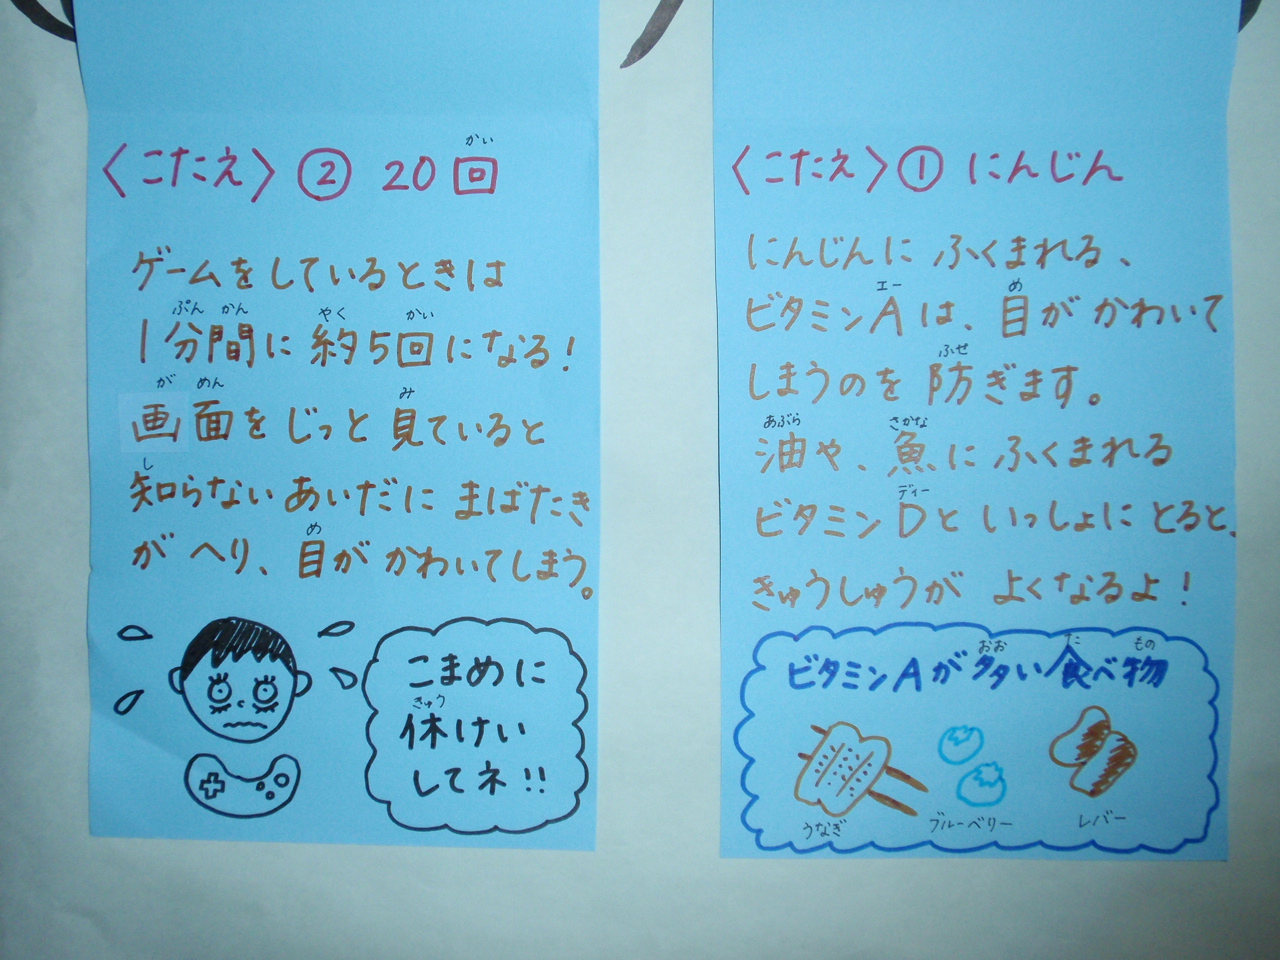 〈こたえ〉② 20回
かい
ゲームをしているときは
ぷん かん やく かい
1分間に 約5回になる!
が めん み
画面をじっと 見ていると
し
知らない あいだに まばたき
め
が へり、目が かわいてしまう。
こまめに
きゅう
休けい
してネ!!
〈こたえ〉① にんじん
にんじんに ふくまれる、
エー め
ビタミンAは、目が かわいて
ふせ
しまうのを 防ぎます。
あぶら さかな
油や、魚に ふくまれる
ディー
ビタミンDと いっしょに とると、
きゅうしゅうが よくなるよ!
おお た もの
ビタミンAが多い食べ物
うなぎ ブルーベリー レバー